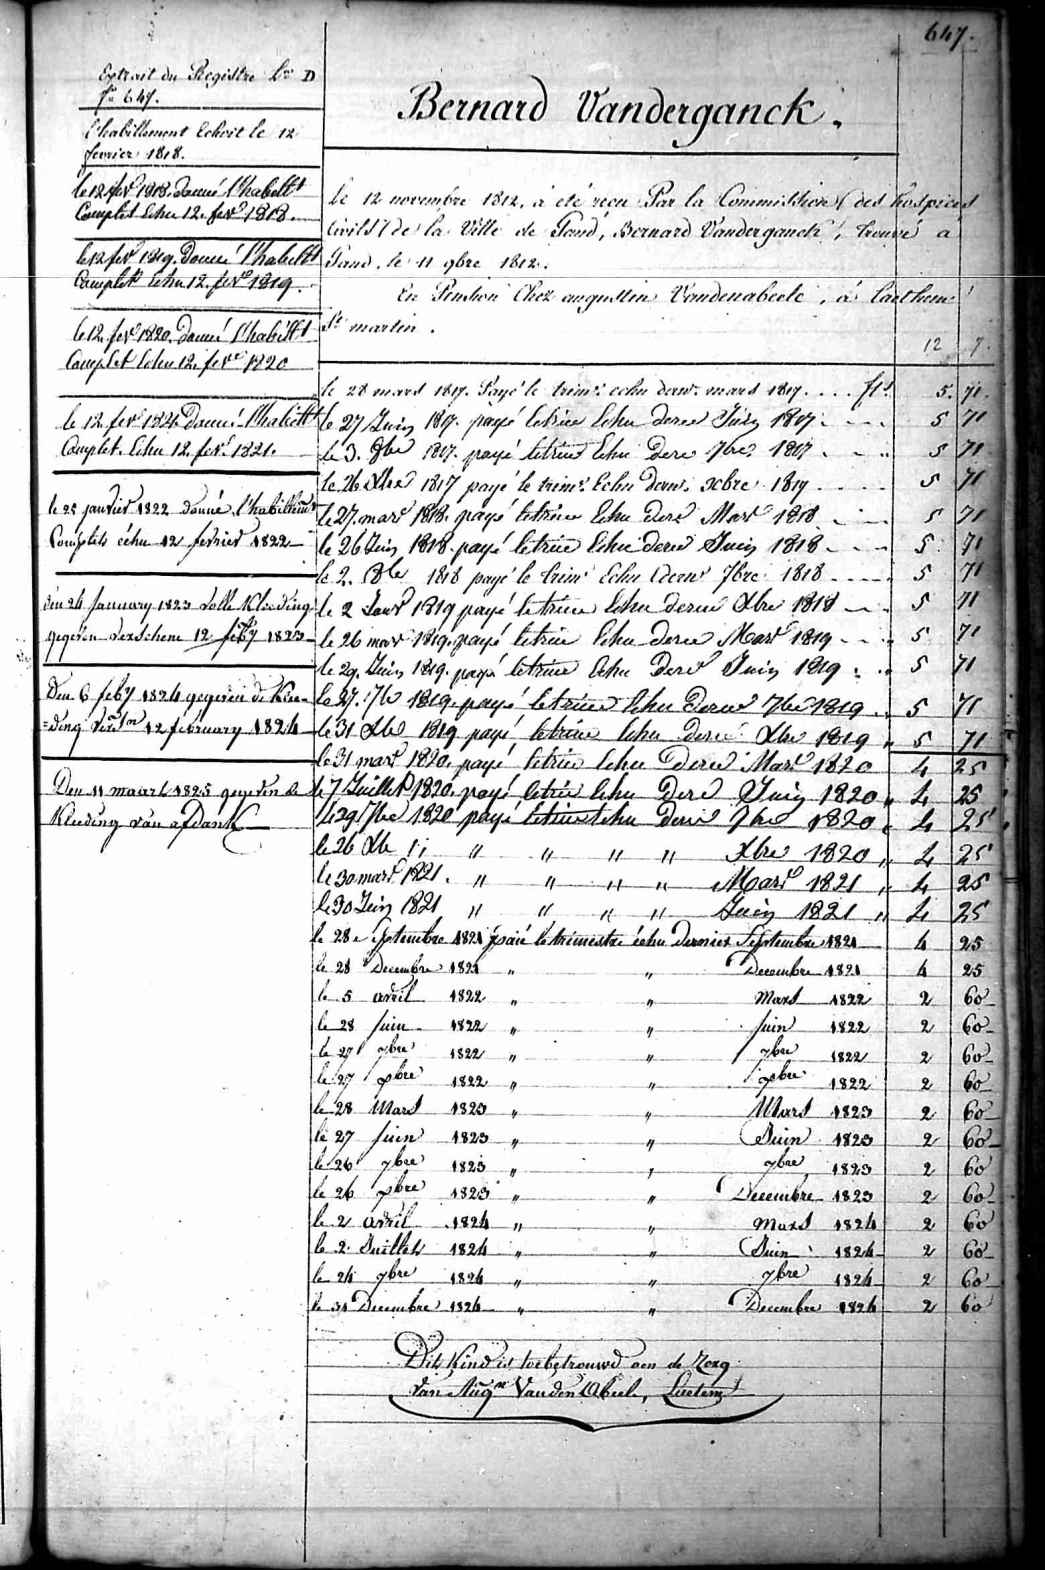 647.
Extrait du Registre Lre D
fo 647.
L'habillement Echoit le 12
fevrier 1818.
le 12 fevr 1818. donné l'habillt
Complet Echu 12. fevr 1818.
le 12 fevr 1819. Donné l'habillt
Complet Echu 12. fevre 1819.
le 12. fevre 1820. Donné l'habillt
Complet Echu 12. fevre 1820
le 12 fevr 1821 Donné l'habillt
Complet. Echu 12. fevr 1821.
le 25 janvier 1822 donné l'habillemt
Complets échu 12 fevrier 1822
den 24 January 1823 volle Kleeding
gegeven verschene 12 feby 1823
Den 6 feby 1824 gegeven de Klee-
=ding 12 february 1824
Den 11 maart 1825 gegeven de
Kleeding van afdank
Bernard Vanderganck.
le 12 novembre 1812, a été reçu Par la Commission des hospices
Civils de la Ville de Gand, Bernard Vanderganck, trouvé a
Gand, le 11 9bre 1812.
En Pension Chez augustin Vandenabeele, á Laethem
St martin.
12 7.
le 28 mars 1817. Payé le trimr echu dernr mars 1817. . . . fls. 5. 71.
le 27 Juin 1817. payé letrim Echu dern Juin 1817. 5 71
le 3. 8bre 1817. payé letrim Echu Dern 7bre 1817 5 71
le 26 Xbre 1817 payé le trimr Echu dernr xcbre 1817 5 71
le 27. mars 1818. payé letrim Echu dern Mars 1818 5 71
le 26 Juin 1818. payé letrim Echu dern Juin 1818 5 71
le 2. 8bre 1818 payé le trimr Echu dernr 7bre 1818 5 71
le 2 Janvr 1819 payé letrim Echu dern Xbre 1818 5 71
le 26 mars 1819. payé letrim Echu dern Mars 1819 5 71
le 29. Juin 1819. payé letrim Echu Dern Juin 1819 5 71
le 27. 7bre 1819. payé letrim Echu Dern 7bre 1819 5 71
le 31 Xbre 1819 payé letrim Echu dern Xbre 1819 " 5 71
le 31 mars 1820. payé letrim Echu Dern Mars 1820 4 25
le 7 Juillet 1820. payé letrim Echu Dern Juin 1820 " 4 25
le 29. 7bre 1820 payé letrim Echu Dern 7bre 1820 " 4 25
le 26 Xbre " " " " " Xbre 1820 " 4 25
le 30 mars 1821. " " " " Mars 1821 " 4 25
le 30 Juin 1821 " " " " Juin 1821 " 4 25
le 28 Septembre 1821 paié le trimestre échu dernier Septembre 1821 4 25
le 28 Decembre 1821 " " Decembre 1821 4 25
le 5 avril 1822 " " Mars 1822 2 60
le 28 juin 1822 " " juin 1822 2 60
le 27 7bre 1822 " " 7bre 1822 2 60
le 27 xbre 1822 " " xbre 1822 2 60
le 28 Mars 1823 " " Mars 1823 2 60
le 27 juin 1823 " " Juin 1823 2 60
le 26 7bre 1823 " " 7bre 1823 2 60
le 26 xbre 1823 " " Decembre 1823 2 60
le 2 avril 1824 " " Mars 1824 2 60
le 2. Juillet 1824 " " Juin 1824 2 60
le 24 7bre 1824 " " 7bre 1824 2 60
le 31 Decembre 1824 " " Decembre 1824 2 60
Dit Kind is toebetrouwd aen de Zorg
van Augn Vanden Abeele, Laetem